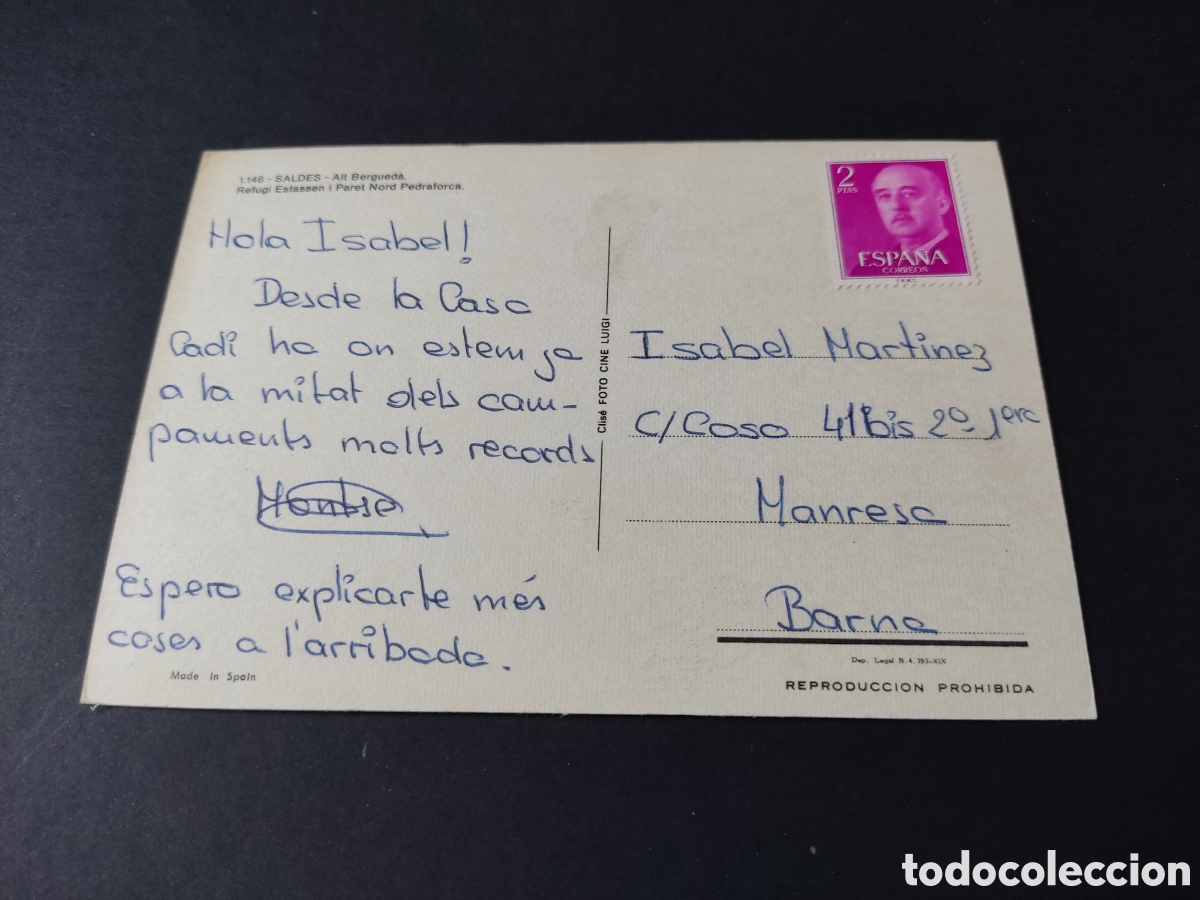 1.146 - SALDES - Alt Berguedà.
Refugi Estassen i Paret Nord Pedraforca.
Hola Isabel!
Desde la Casa
Cadí ha on estem ja
a la mitat dels cam-
paments molts records
Montse
Espero explicarte més
coses a l'arribada.
Made in Spain
Clisé FOTO CINE LUIGI
2
PTAS
ESPAÑA
CORREOS
Isabel Martinez
C/Coso 41bis 2º 1era
Manresa
Barna
Dep. Legal B. 4.393-XIX
REPRODUCCION PROHIBIDA
todocoleccion